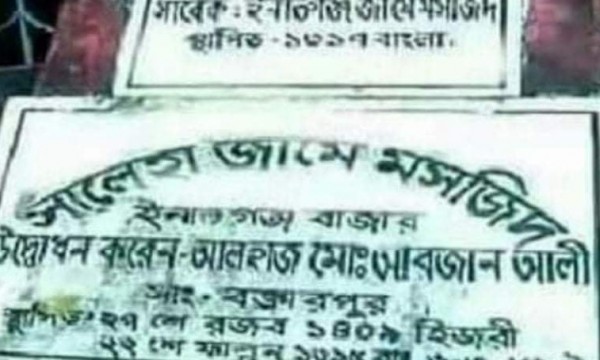 সাবেক : ইনাতগঞ্জ জামে মসজিদ
স্থাপিত - ১৩১৭ বাংলা.
সালেহ জামে মসজিদ
ইনাতগঞ্জ বাজার
উদ্বোধন করেন-আলহাজ মোঃ আবজান আলী
সাং- বক্তারপুর
স্থাপিত- ২৭ শে রজব ১৪০৯ হিজরী
২২ শে ফাল্গুন